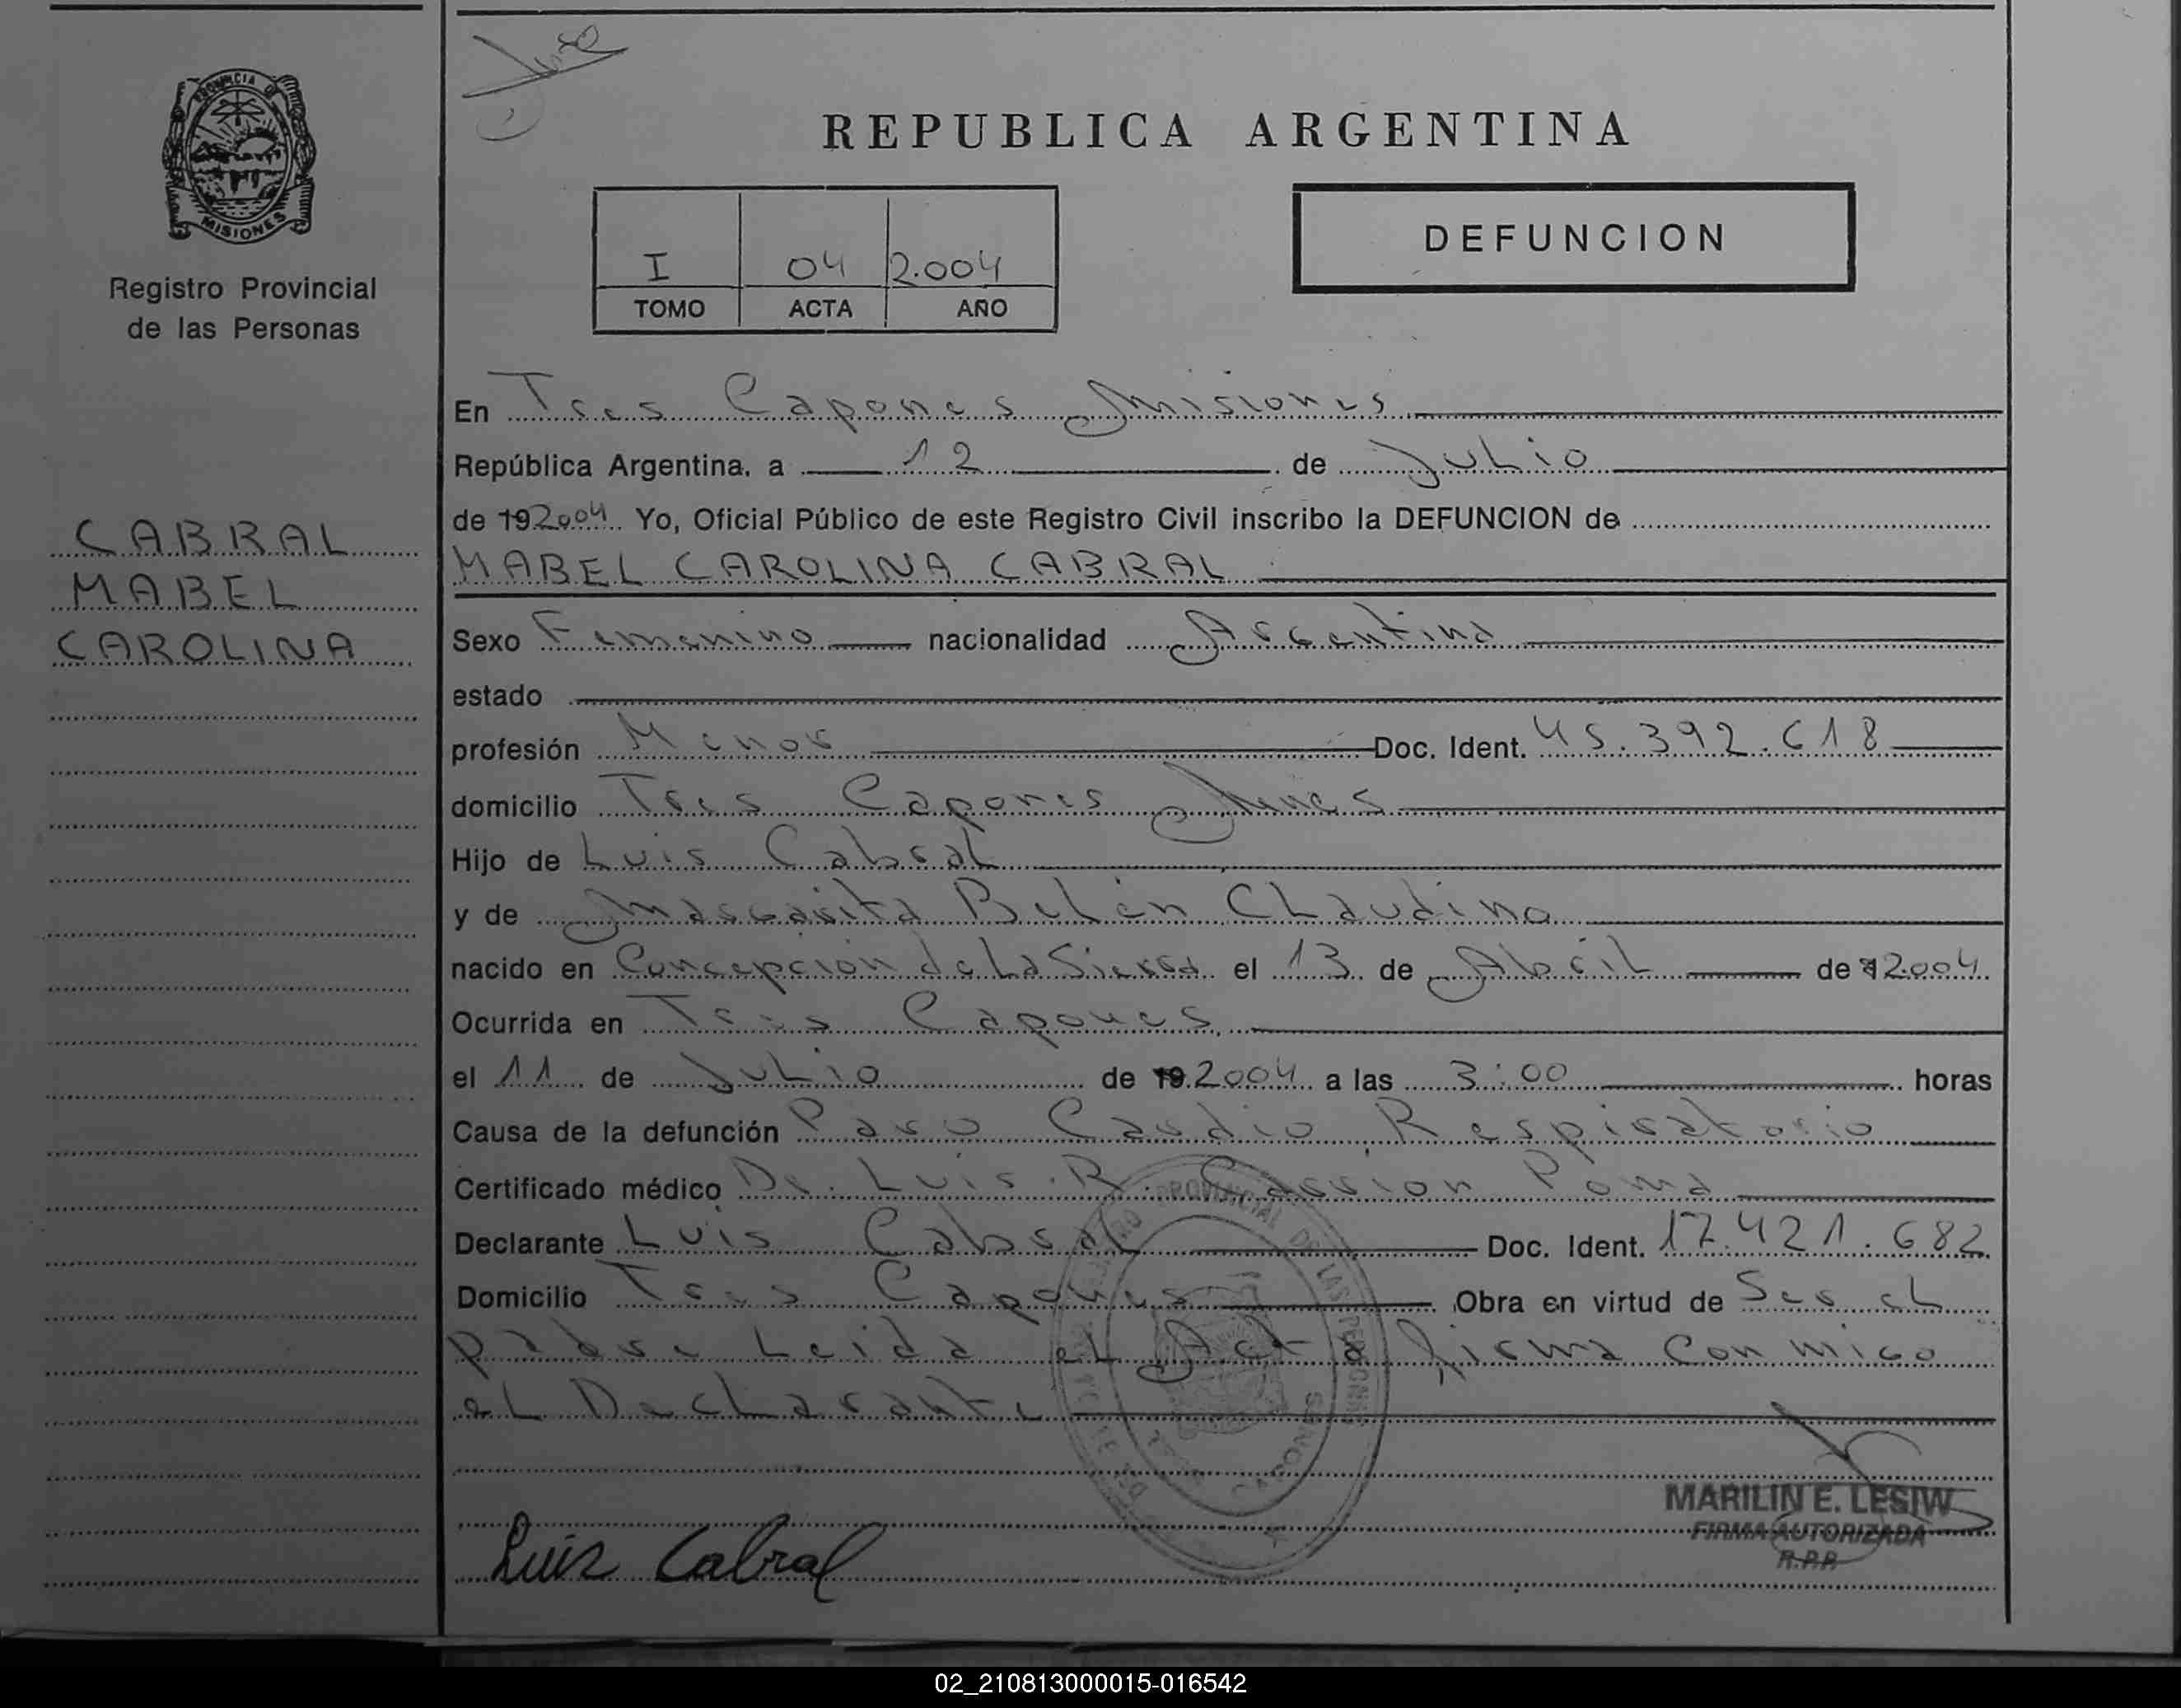 PROVINCIA DE
MISIONES
Registro Provincial
de las Personas
CABRAL
MABEL
CAROLINA
REPUBLICA ARGENTINA
DEFUNCION
I 04 2.004
TOMO ACTA AÑO
En Tres Capones Misiones
República Argentina, a 12 de Julio
de 192004 Yo, Oficial Público de este Registro Civil inscribo la DEFUNCION de
MABEL CAROLINA CABRAL
Sexo Femenino nacionalidad Argentina
estado
profesión Menor Doc. Ident. 45.392.618
domicilio Tres Capones Mnes
Hijo de Luis Cabral
y de Margarita Belén Claudino
nacido en Concepción de La Sierra el 13 de Abril de 2004
Ocurrida en Tres Capones
el 11 de Julio de 192004 a las 3:00 horas
Causa de la defunción Paro Cardio Respiratorio
Certificado médico Dr. Luis R. Poma
Declarante Luis Cabral Doc. Ident. 17.421.682
Domicilio Tres Capones Obra en virtud de Ser el
padre Leida el Acta firma con migo
el Declarante
PROVINCIAL DE LAS PERSONAS
Luis Cabral
MARILIN E. LESIW
FIRMA AUTORIZADA
R.P.P.
02_210813000015-016542